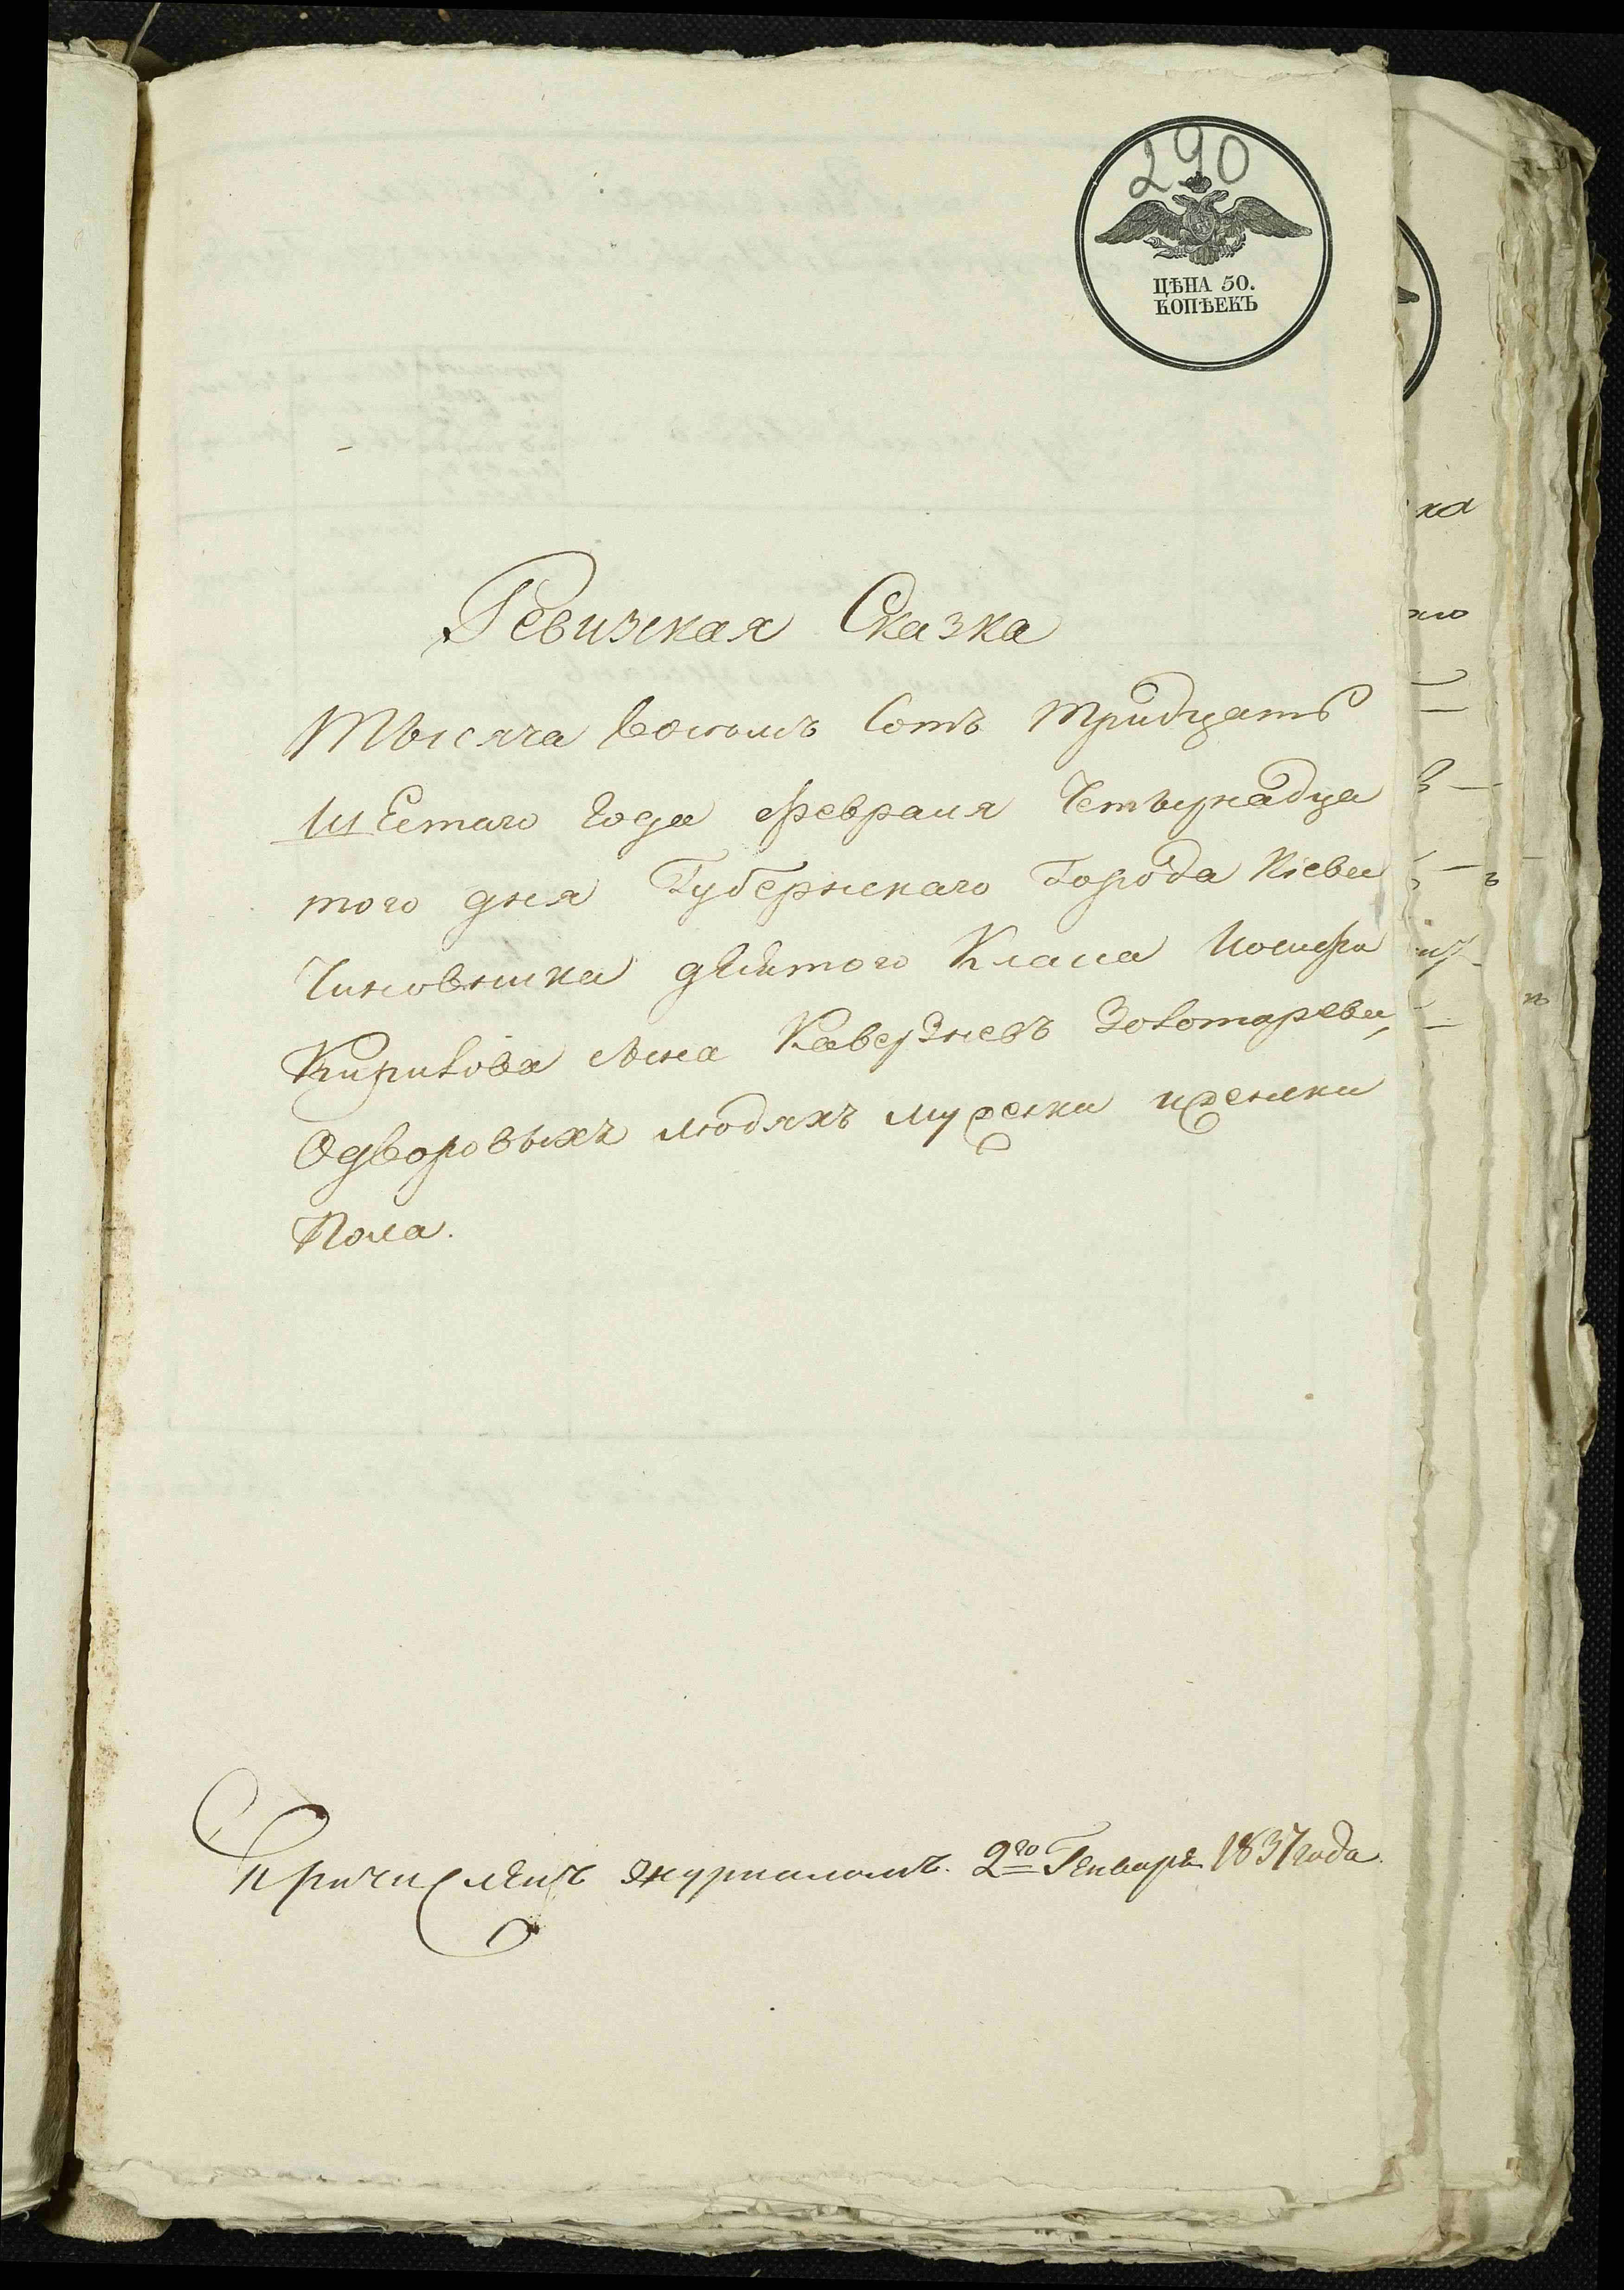 290
ЦѢНА 50.
КОПѢЕКЪ
Ревизская Сказка
Тысяча Восемъ Сотъ тридцать
шЕстаго года февраля Четырнадца
того дня Губернскаго Города Кіева
Чиновника дѢвятого Класса Иосифа
Кирилова сына Каверзневъ Золотарева,
Одворовыхъ людяхъ мужеска иженска
Пола.
Причисленъ журналомъ. 2го Генваря 1837 года.